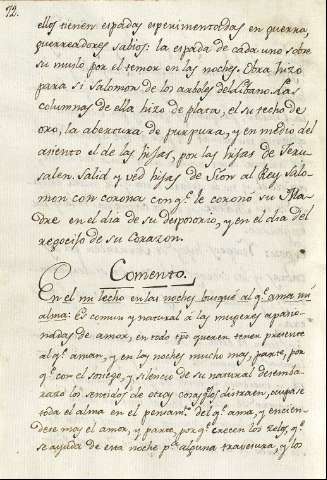 72.
ellos tienen espadas experimentadas en guerra,
guerreadores sabios: la espada de cada uno sobre
su muslo por el temor en las noches. Obra hizo
para si Salomon de los arboles del Libano. Las
columnas de ella hizo de plata, el su techo de
oro, la abertura de purpura, y en medio del
asiento el de las hijas, por las hijas de Jeru-
salen. Salid y ved hijas de Sion al Rey Salo-
mon con corona con q.e le coronó su Ma-
dre en el dia de su desposorio, y en el dia del
regocijo de su corazon.
Comento.
En el mi lecho en las noches busqué al q.e ama mi
alma: Es comun y natural á las mugeres apasio-
nadas de amor, en todo tpo querer tener presente
al q.e aman, y en las noches mucho mas, parte, por
q.e con el sosiego, y silencio de su natural desemba-
razo los sentidos de otras cosas q.e los distraen, ocupase
toda el alma en el pensam.to del q.e ama, y encien-
dese mas el amor, y parte, por q.e crecen los zelos, q.e
se ayuda de esta noche p.a alguna travesura, y los